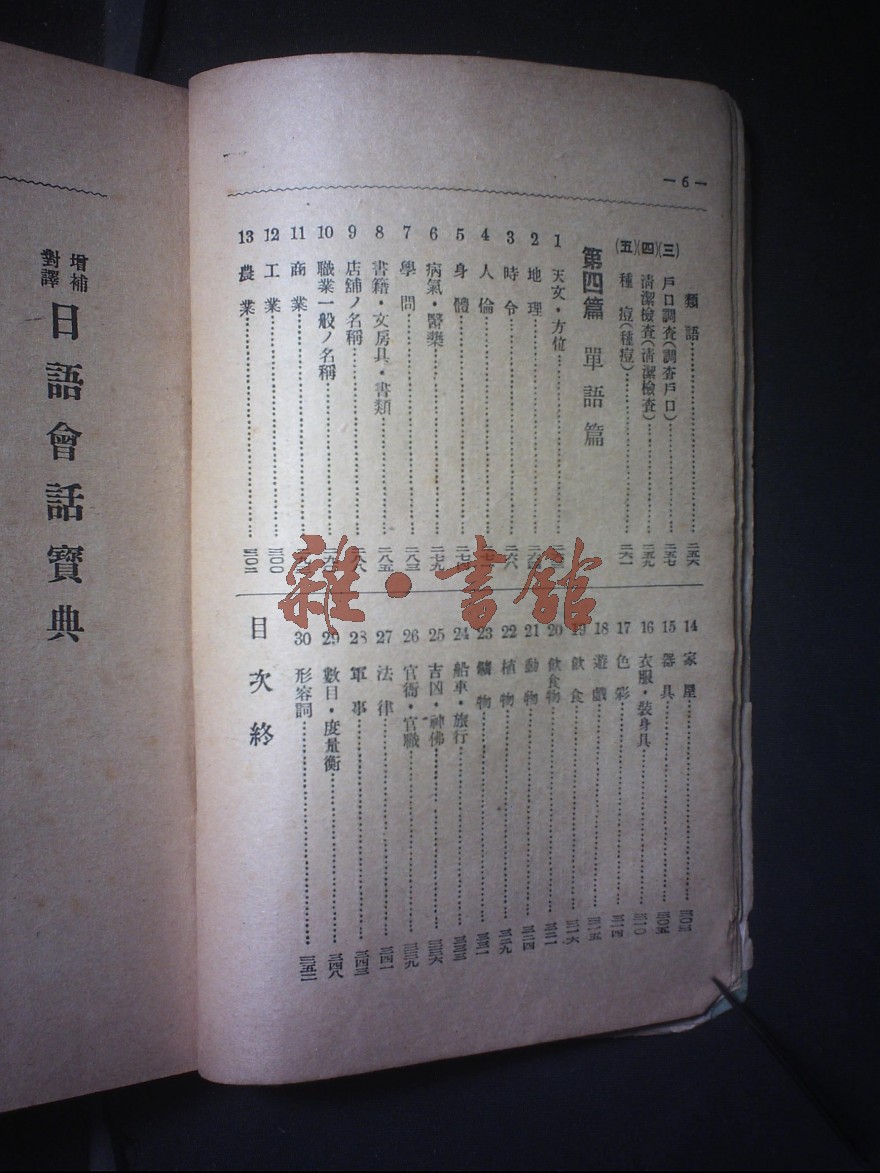 — 6 —
類語……二五六
(三) 戶口調查(調查戶口)……二五七
(四) 淸潔檢査(淸潔檢査)……二五九
(五) 種痘(種痘)……二六一
第四篇 單語篇
1 天文・方位
2 地理
3 時令……二六六
4 人倫
5 身體
6 病氣・醫藥……二七九
7 學問……二八三
8 書籍・文房具・書類……二八五
9 店舖ノ名稱
10 職業一般ノ名稱
11 商業
12 工業……三〇〇
13 農業
14 家屋
15 器具……三〇五
16 衣服・裝身具……三一〇
17 色彩……三一四
18 遊戲……三一五
19 飮食……三一六
20 飮食物……三二一
21 動物……三二四
22 植物……三二九
23 鑛物……三三一
24 船車・旅行……三三三
25 吉凶・神佛……三三六
26 官衙・官職……三三九
27 法律……三四一
28 軍事……三四三
29 數目・度量衡……三四八
30 形容詞
目次終
增補
對譯
日語會話寶典
雜・書館